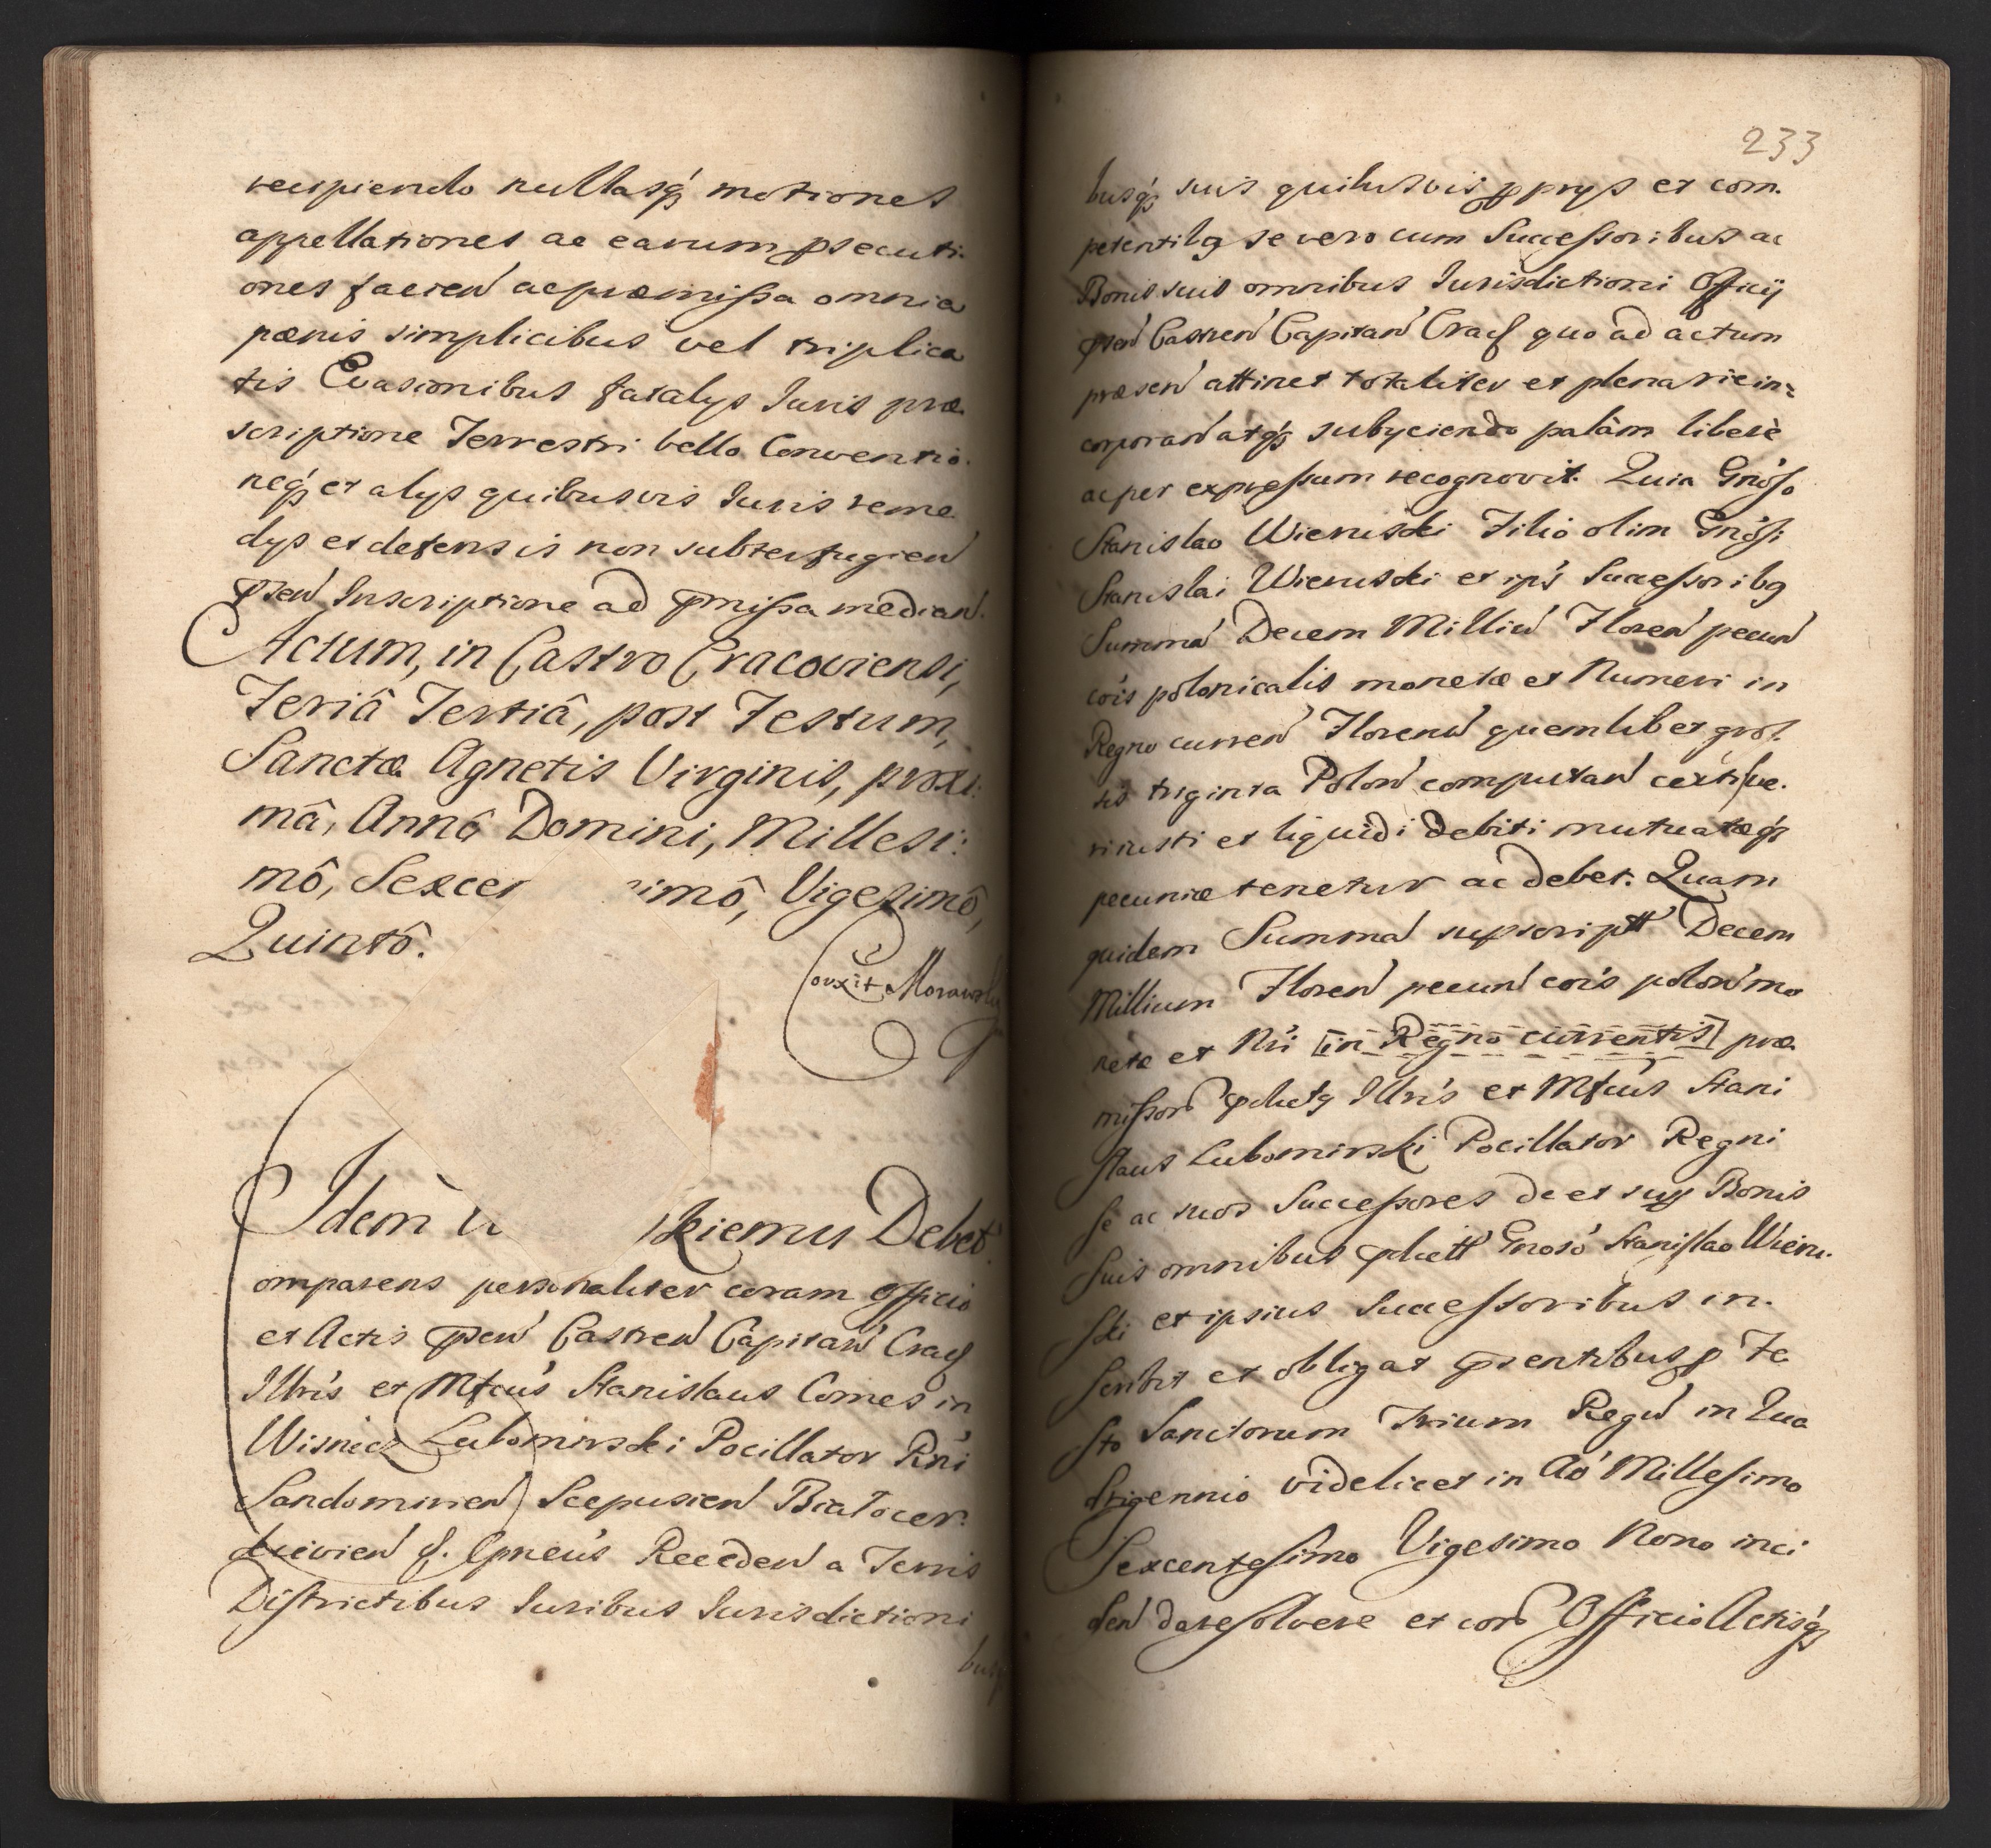 recipiendo nullasq́ʒ motiones
appellationes ac earum ꝓsecuti-
ones facieñ ac præmissa omnia
pænis simplicibus vel triplica
tis Evasionibus fatalijs Juris præ
scriptione Terrestri bello Conventio-
neq́ʒ et alijs quibusvis Juris reme
dijs et defensis non subterfugień
p̃seń Inscriptione ad p̃missa mediań.
Actum, in Castro Cracoviensi,
Feriâ Tertiâ, post Festum,
Sanctæ Agnetis Virginis, proxi:
mâ, Annô Domini, Millesi:
mô, Sexcen imô, Vigesimô,
Quintô.
Corrxit Morawsky
Idem
skiemu Debet
omparens personaliter coram Officio
et Actis p̃seń Castreń Capitań Crac
Illris et Mfcus Stanislaus Comes in
Wisnicz Lubomirski Pocillator Rńi
Sandomirień Scepusień Białocer-
kievień &. Cpneus Recedeń a Terris
Districtibus Juribus Jurisdictioni
busq́ʒ
233
busq́ʒ suis quibusvis ꝓprijs et com-
petentibɜ se vero cum Successoribus ac
Bonis suis omnibus Jurisdictioni Officij
p̃seń Castreń Capitań Crac quo ad actum
præseń attinet totaliter et plenarie in-
corporań atq́ʒ subijciendo palàm liberè
ac per expressum recognovit. Quia Gnoso
Stanislao Wieruski Filio olim Gnosi
Stanislai Wieruski et ips Successoribɜ
Summá Decem Milliú Floreń pecuń
cois polonicalis monetæ et Numeri in
Regno curreń Florenú quemlibet gros-
sis triginta Poloń computań certi ve-
ri iusti et liquidi debiti mutuatæq́ʒ
pecuniæ tenetur ac debet. Quam
quidem Summá supscriptt Decem
Millium Floreń pecuń cois poloń mo
netæ et Nri [in Regno currentis] præ-
missoŕ Illris et Mfcus Stani
slaus Lubomirski Pocillator Regni
se ac suos Successores de et super Bonis
suis omnibus Gnoso Stanislao Wieru-
ski et ipsius Successoribus in-
scribit et obligat p̃sentibus ꝓ Fe
sto Sanctorum Trium Regú in Qua
drigennio videlicet in Aó Millesimo
Sexcentesimo Vigesimo Nono inci
deń dare solvere et corá Officio Actisq́ʒ